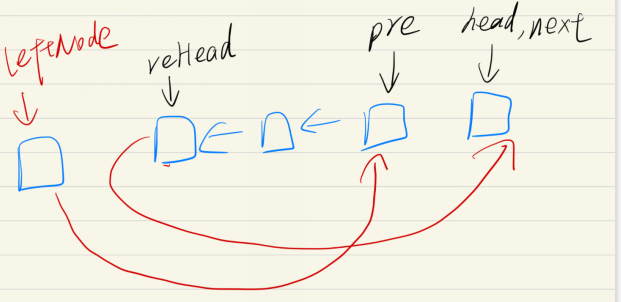 leftNode
reHead
pre
head, next